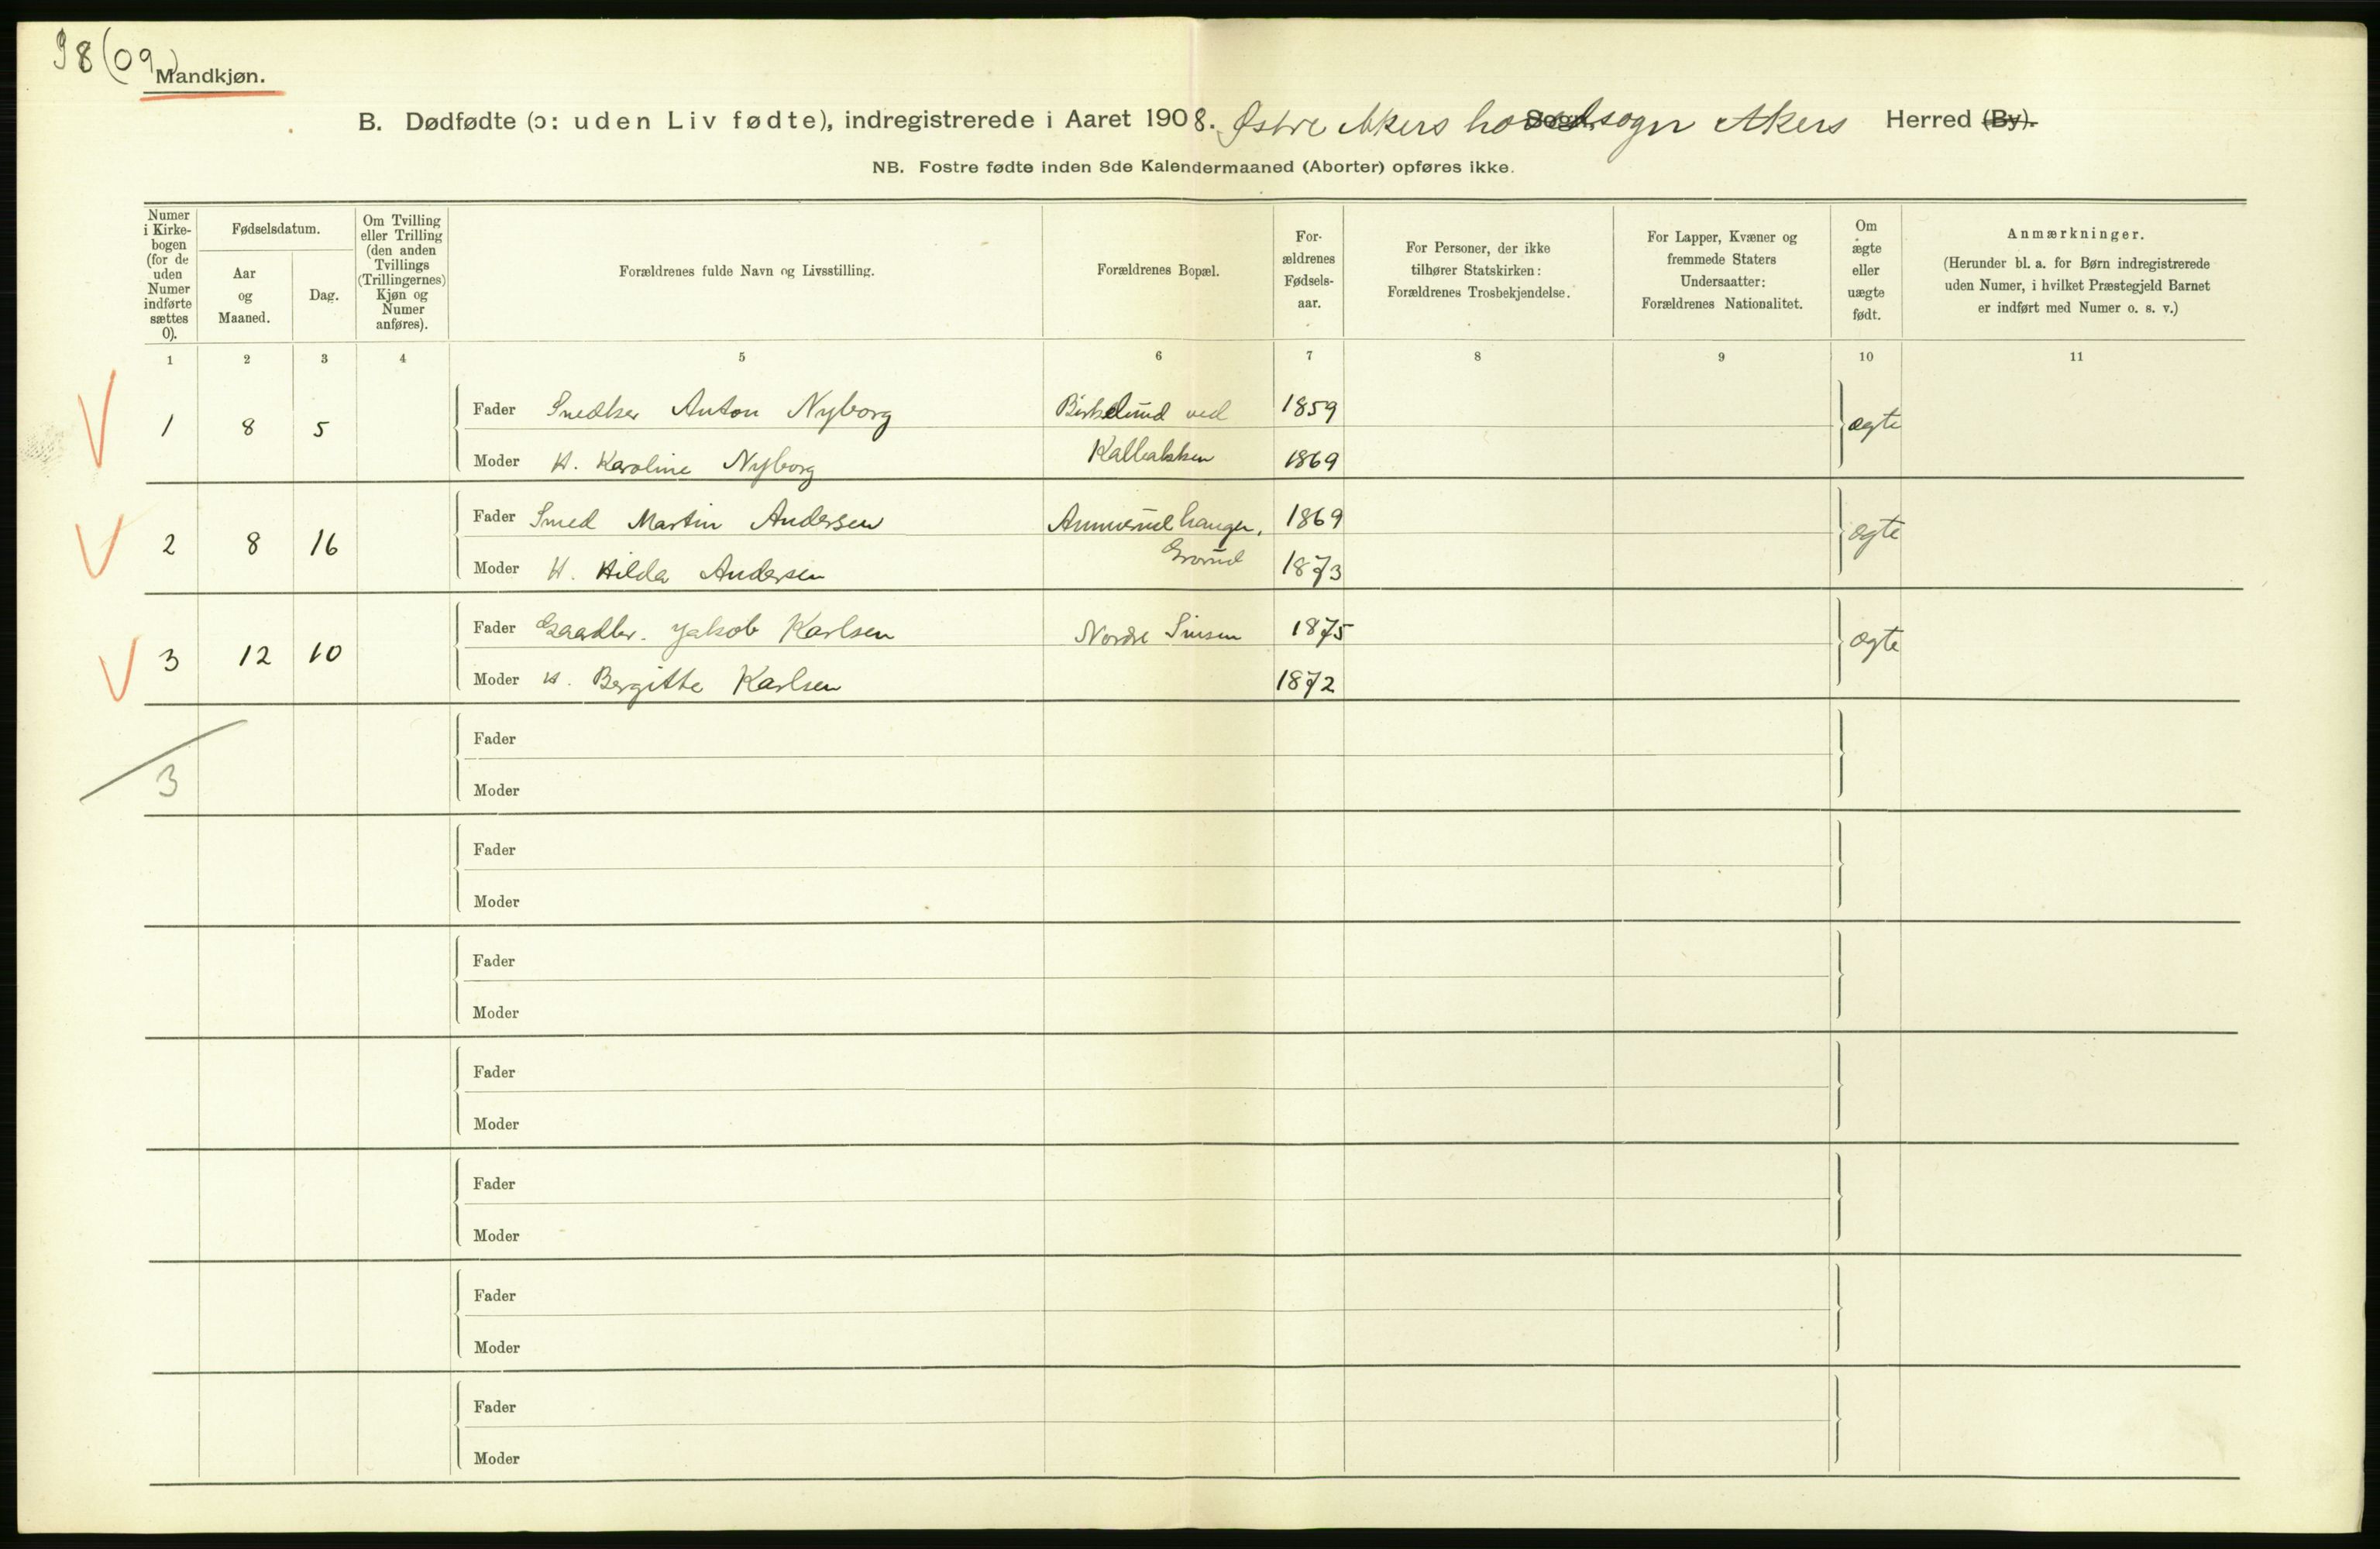 98(09)
Mandkjøn.
B. Dødfødte (ɔ: uden Liv fødte), indregistrerede i Aaret 1908. Østre Akers hovedsogn Akers Herred (By).
NB. Fostre fødte inden 8de Kalendermaaned (Aborter) opføres ikke.
Numer i Kirke- bogen (for de uden Numer indførte sættes 0).
Fødselsdatum.
Aar og Maaned.
Dag.
Om Tvilling eller Trilling (den anden Tvillings (Trillingernes) Kjøn og Numer anføres).
Forældrenes fulde Navn og Livsstilling.
Forældrenes Bopæl.
For- ældrenes Fødsels- aar.
For Personer, der ikke tilhører Statskirken: Forældrenes Trosbekjendelse.
For Lapper, Kvæner og fremmede Staters Undersaatter: Forældrenes Nationalitet.
Om ægte eller uægte født.
Anmærkninger.
(Herunder bl. a. for Børn indregistrerede uden Numer, i hvilket Præstegjeld Barnet er indført med Numer o. s. v.)
1 2 3 4 5 6 7 8 9 10 11
1 8 5 Fader Snedker Anton Nyborg Birkelund ved 1859 ægte
Moder H. Karoline Nyborg Kalbakken 1869
2 8 16 Fader Smed Martin Andersen Ammerudhaugen, 1869 ægte
Moder H. Hilda Andersen Grorud 1873
3 12 10 Fader Gaardbr. Jakob Karlsen Nordre Sinsen 1875 ægte
Moder H. Bergitte Karlsen 1872
3
Fader
Moder
Fader
Moder
Fader
Moder
Fader
Moder
Fader
Moder
Fader
Moder
Fader
Moder